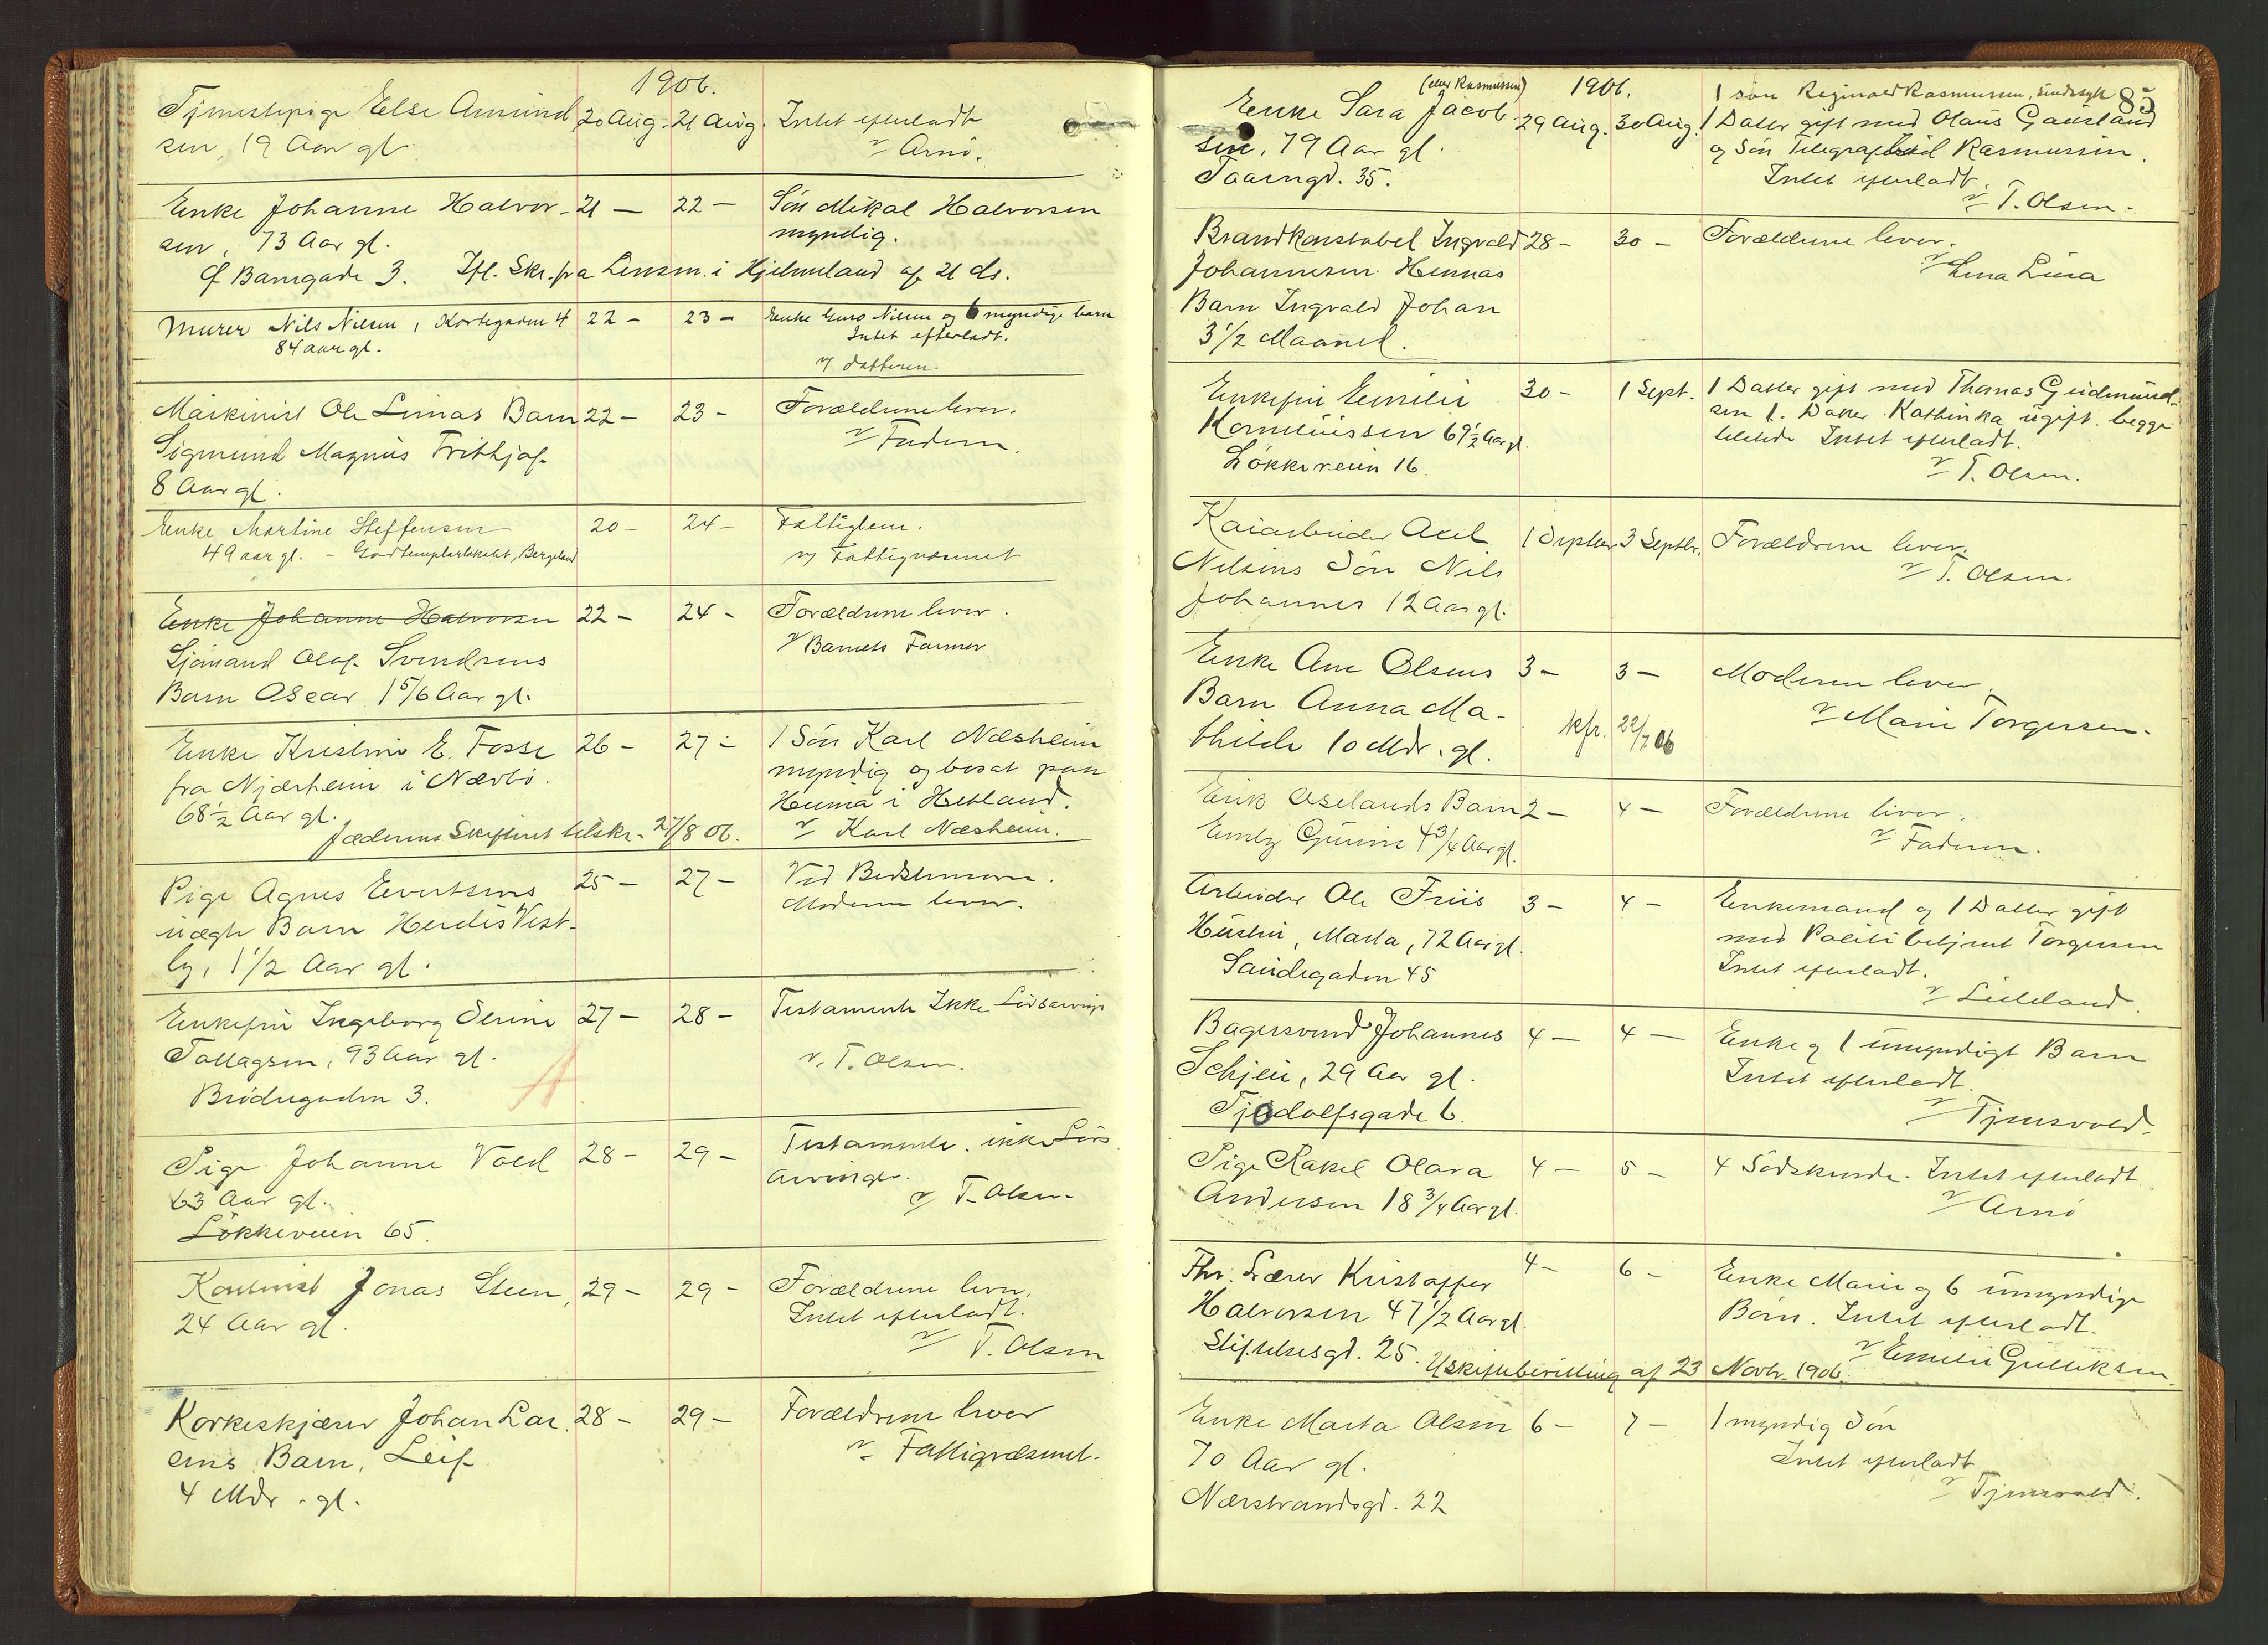 1906.
Tjenestepige Else Amund 20 Aug. 21 Aug. Intet efterladt
sen, 19 Aar gl. v Arnø.
Enke Johanne Halvor- 21 — 22 — Søn Mikal Halvorsen
sen, 73 Aar gl. myndig.
Bamgade 3. Ifl. Skr. fra Lensm. i Hjelmeland af 21 ds.
Murer Nils Nilsen, Kortegaden 4 22 — 23 — Enke Guro Nilsen og 6 myndige barn
84 aar gl. Intet efterladt.
v datteren.
Maskinist Ole Limas Barn 22 — 23 — Forældrene lever.
Sigmund Magnus Frithjof v Faderen.
8 Aar gl.
Enke Martine Steffensen 20 — 24 — Fattiglem.
49 aar gl. – Godtemplarlokalet, Bergeland v Fattigvæsenet
Enke Johanne Halvorsen 22 — 24 — Forældrene lever.
Sjømand Olaf Svendsens v Barnets Farmor
Barn Oscar 1 5/6 Aar gl.
Enke Kristine E. Fosse 26 — 27 — 1 Søn Karl Næsheim
fra Njærheim i Nærbø. myndig og bosat paa
68 1/2 Aar gl. Heimia i Hetland.
Jæderens Skifteret tilskr. 27/8 06. v Karl Næsheim.
Pige Agnes Evertsens 25 — 27 — Ved Bedstemoren.
uægte Barn Herdis Vest- Moderen lever.
ly, 1 1/2 Aar gl.
Enkefru Ingeborg Serine 27 — 28 — Testamente Ikke Livsarvinge
Tallagsen, 93 Aar gl. v. T. Olsen.
Brødregaden 3.
Pige Johanne Vold 28 — 29 — Testamente. ikke Livs
63 Aar gl. arvinger.
Løkkeveien 65. v T. Olsen
Kontorist Jonas Steen, 29 — 29 — Forældrene lever.
24 Aar gl. Intet efterladt.
v T. Olsen
Korkeskjærer Johan Lar 28 — 29 — Forældrene lever
sens Barn, Leif v Fattigvæsenet.
4 Mdr. gl.
85
(eller Rasmussen) 1906. 1 søn Reginald Rasmussen, sindssyk
Enke Sara Jacob 29 Aug. 30 Aug. 1 Datter gift med Olaus Gausland
sen, 79 Aar gl. og Søn Telegrafbud Rasmussen.
Taarngd. 35. Intet efterladt.
v T. Olsen.
Brandkonstabel Ingvald 28 — 30 — Forældrene lever.
Johannesen Hennas v Lina
Barn Ingvald Johan
3 1/2 Maaned.
Enkefru Emilie 30 — 1 Sept. 1 Datter gift med Thomas Gudmund-
Korneliussen 69 1/2 Aar gl. sen 1. Datter Kathinka ugift. begge
Løkkeveien 16. tilstede Intet efterladt.
v T. Olsen.
Kaiarbeider Axel 1 Septbr. 3 Septbr. Forældrene lever.
Nilsens Søn Nils v T. Olsen.
Johannes 12 Aar gl.
Enke Ane Olsens 3 — 3 — Moderen lever.
Barn Anna Ma- v Marie Torgersen.
thilde 10 Mdr. gl. kfr. 22/7 06
Erik Øselands Barn 2 — 4 — Forældrene lever.
Emly Gunne 4 3/4 Aar gl. v Faderen.
Arbeider Ole Friis 3 — 4 — Enkemand og 1 Datter gift
Hustru, Marta, 72 Aar gl. med Politibetjent Torgersen
Sandegaden 45 Intet efterladt.
v Lileland.
Bagersvend Johannes 4 — 4 — Enke og 1 umyndigt Barn
Schjei, 29 Aar gl. Intet efterladt.
Tjodolfsgade 6. v Tjensvold.
Pige Rakel Olava 4 — 5 — 4 Sødskende. Intet efterladt
Andersen 18 3/4 Aar gl. v Arnø
Fhv. Lærer Kristoffer 4 — 6 — Enke Marie og 6 umyndige
Halvorsen 47 1/2 Aar gl. Børn. Intet efterladt.
Stiftelsesgd. 25. v Emilie Gulliksen.
Uskiftebevilling af 23 Novbr. 1906.
Enke Marta Olsen 6 — 7 — 1 myndig Søn
70 Aar gl. Intet efterladt
Nærstrandsgd. 22 v Tjensvold.